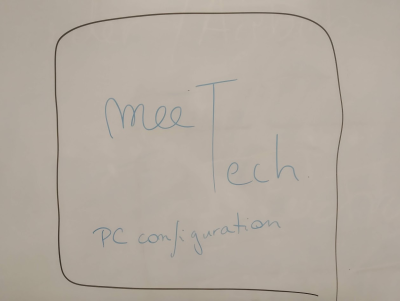 meeTech.
PC configuration